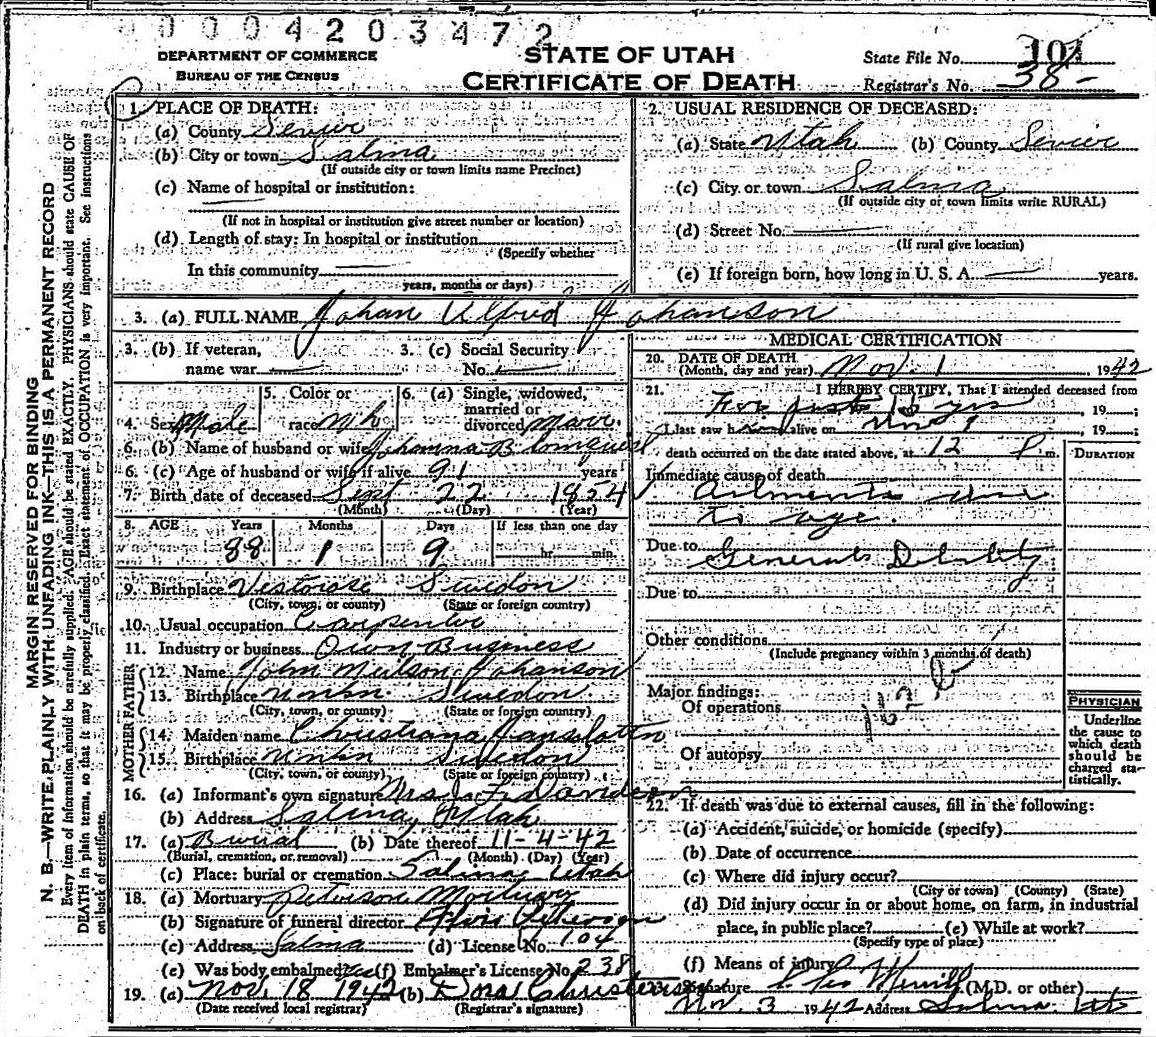 0004203472
DEPARTMENT OF COMMERCE
BUREAU OF THE CENSUS
STATE OF UTAH
CERTIFICATE OF DEATH
State File No. 104
Registrar's No. 38-
MARGIN RESERVED FOR BINDING
N. B.—WRITE PLAINLY WITH UNFADING INK—THIS IS A PERMANENT RECORD
Every item of information should be carefully supplied. AGE should be stated EXACTLY. PHYSICIANS should state CAUSE OF
DEATH in plain terms, so that it may be properly classified. Exact statement of OCCUPATION is very important. See instructions
on back of certificate.
1. PLACE OF DEATH:
(a) County Sevier
(b) City or town Salina
(If outside city or town limits name Precinct)
(c) Name of hospital or institution:
(If not in hospital or institution give street number or location)
(d) Length of stay: In hospital or institution
(Specify whether
In this community
years, months or days)
2. USUAL RESIDENCE OF DECEASED:
(a) State Utah (b) County Sevier
(c) City or town Salina
(If outside city or town limits write RURAL)
(d) Street No.
(If rural give location)
(e) If foreign born, how long in U. S. A. years.
3. (a) FULL NAME Johan Alfred Johanson
3. (b) If veteran, name war
3. (c) Social Security No.
4. Sex Male
5. Color or race Wh
6. (a) Single, widowed, married or divorced Marr.
6. (b) Name of husband or wife Johanna B
6. (c) Age of husband or wife if alive 91 years
7. Birth date of deceased Sept 22 1854
(Month) (Day) (Year)
8. AGE Years Months Days If less than one day
88 1 9 hr. min.
9. Birthplace Sweden
(City, town, or county) (State or foreign country)
10. Usual occupation Carpenter
11. Industry or business Own Business
FATHER
12. Name John Johanson
13. Birthplace Unkn Sweden
(City, town, or county) (State or foreign country)
MOTHER
14. Maiden name Christiana
15. Birthplace Unkn Sweden
(City, town, or county) (State or foreign country)
16. (a) Informant's own signature Mrs J. F. Davidson
(b) Address Salina, Utah
17. (a) Burial (b) Date thereof 11-4-42
(Burial, cremation, or removal) (Month) (Day) (Year)
(c) Place: burial or cremation Salina Utah
18. (a) Mortuary Peterson Mortuary
(b) Signature of funeral director Peterson
(c) Address Salina (d) License No. 104
(e) Was body embalmed Yes (f) Embalmer's License No. 238
19. (a) Nov. 18 1942 (b) Dora Christensen
(Date received local registrar) (Registrar's signature)
MEDICAL CERTIFICATION
20. DATE OF DEATH
(Month, day and year) Nov. 1 1942
21. I HEREBY CERTIFY, That I attended deceased from
For past 15 yrs , 19 ;
I last saw h alive on Nov 1 , 19 ;
death occurred on the date stated above, at 12 P m.
DURATION
Immediate cause of death
Ailments due
to age.
Due to General Debility
Due to
Other conditions
(Include pregnancy within 3 months of death)
Major findings:
Of operations
162
Of autopsy
PHYSICIAN
Underline
the cause to
which death
should be
charged sta-
tistically.
22. If death was due to external causes, fill in the following:
(a) Accident, suicide, or homicide (specify)
(b) Date of occurrence
(c) Where did injury occur?
(City or town) (County) (State)
(d) Did injury occur in or about home, on farm, in industrial
place, in public place? (e) While at work?
(Specify type of place)
(f) Means of injury
23. Signature Merrill (M.D. or other)
Nov. 3 1942 Address Salina Utah